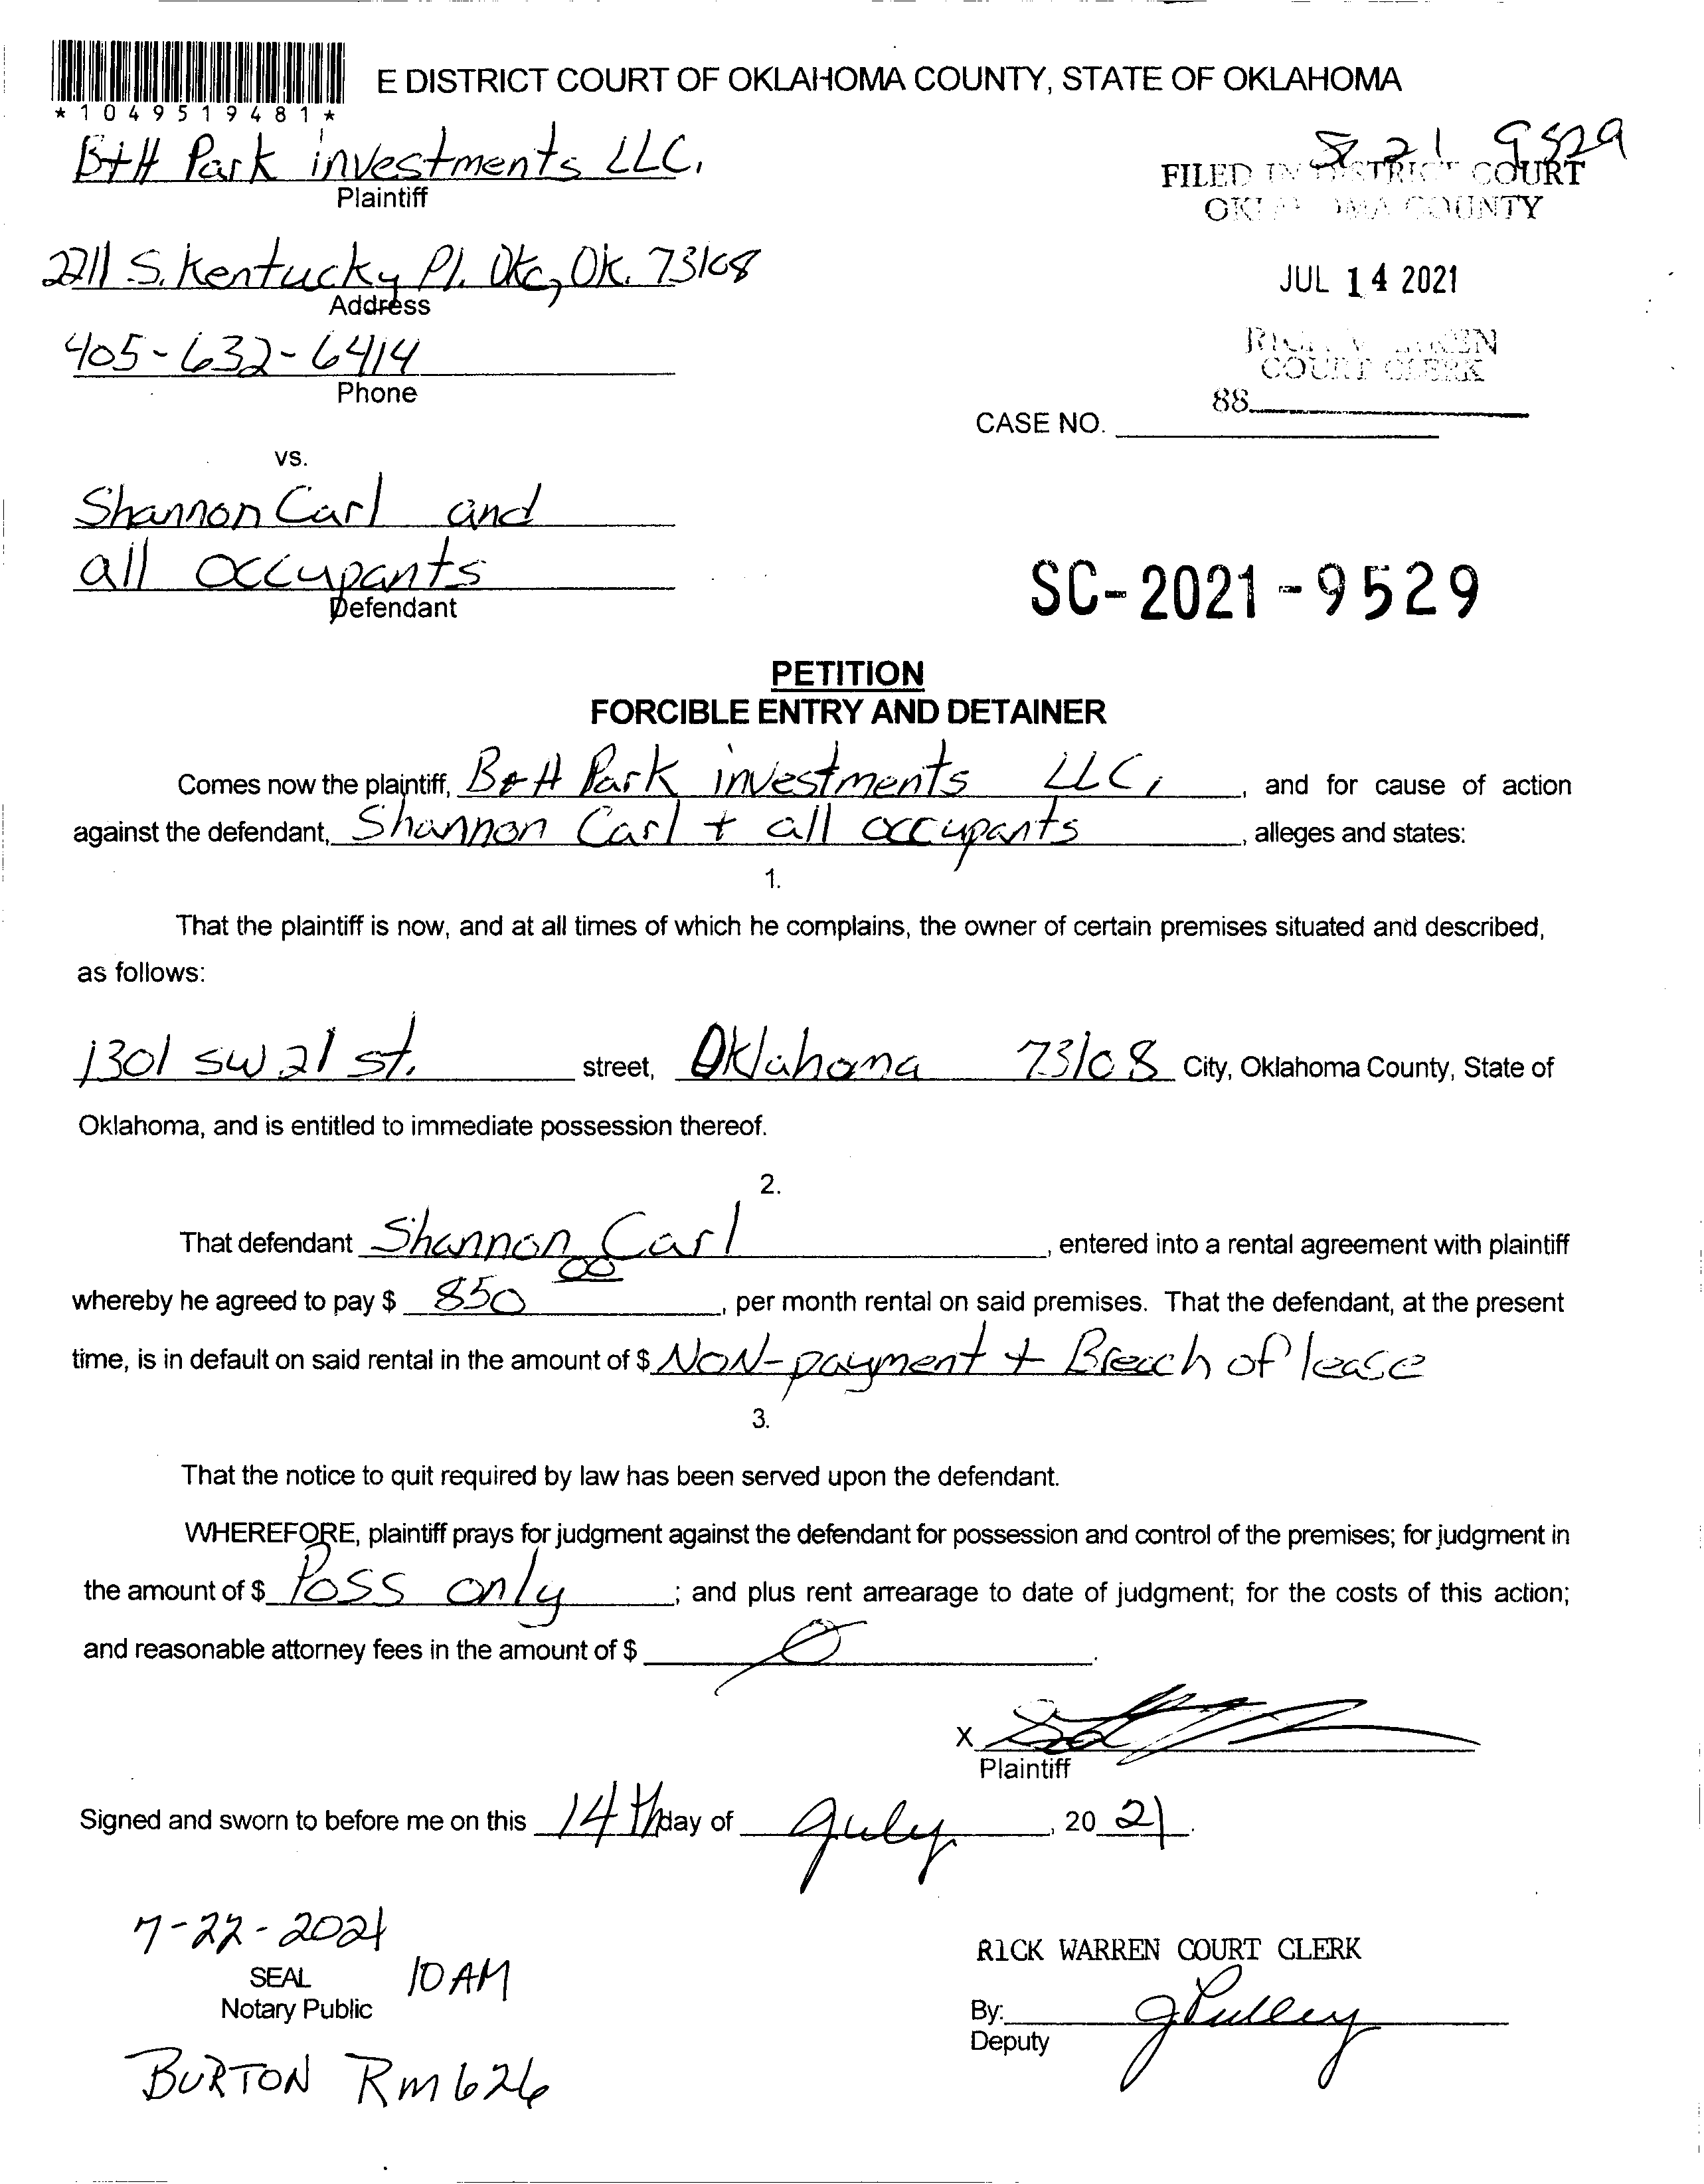 E DISTRICT COURT OF OKLAHOMA COUNTY, STATE OF OKLAHOMA
*1049519481*
B+H Park investments LLC.
Plaintiff
SC 21 9529
FILED IN DISTRICT COURT
OKLAHOMA COUNTY
2211 S. Kentucky Pl. Okc, OK. 73108
Address
JUL 14 2021
405-632-6414
Phone
RICK WARREN
COURT CLERK
88
CASE NO.
vs.
Shannon Carl and
all occupants
Defendant
SC-2021-9529
PETITION
FORCIBLE ENTRY AND DETAINER
Comes now the plaintiff, B&H Park investments LLC, , and for cause of action
against the defendant, Shannon Carl + all occupants, alleges and states:
1.
That the plaintiff is now, and at all times of which he complains, the owner of certain premises situated and described,
as follows:
1301 SW 21 st. street, Oklahoma 73108 City, Oklahoma County, State of
Oklahoma, and is entitled to immediate possession thereof.
2.
That defendant Shannon Carl, entered into a rental agreement with plaintiff
whereby he agreed to pay $ 850 00, per month rental on said premises. That the defendant, at the present
time, is in default on said rental in the amount of $ NON-payment + Breach of lease
3.
That the notice to quit required by law has been served upon the defendant.
WHEREFORE, plaintiff prays for judgment against the defendant for possession and control of the premises; for judgment in
the amount of $ Poss only; and plus rent arrearage to date of judgment; for the costs of this action;
and reasonable attorney fees in the amount of $ 0.
X
Plaintiff
Signed and sworn to before me on this 14th day of July, 20 21.
7-22-2021
SEAL 10 AM
Notary Public
RICK WARREN COURT CLERK
By: J Pulley
Deputy
BURTON Rm 626